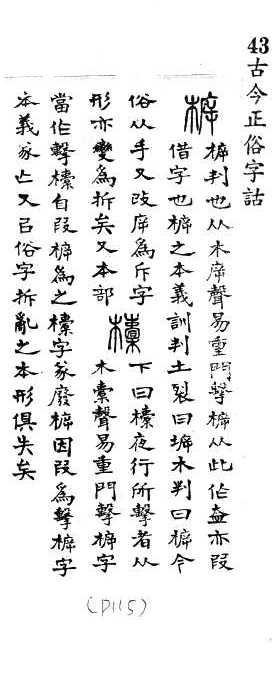 43 古今正俗字詁
㯓 㯓判也从木㡿聲易重門擊㯓从此作盇亦叚
借字也㯓之本義訓判土裂曰㙤木判曰㯓今
俗从手又改㡿為斥字
形亦變為拆矣又本部
欜 下曰欜夜行所擊者从
木橐聲易重門擊㯓字
當作擊欜自叚㯓為之欜字㒸廢㯓因叚為擊㯓字
本義㒸亡又㠯俗字拆亂之本形俱失矣
(P115)